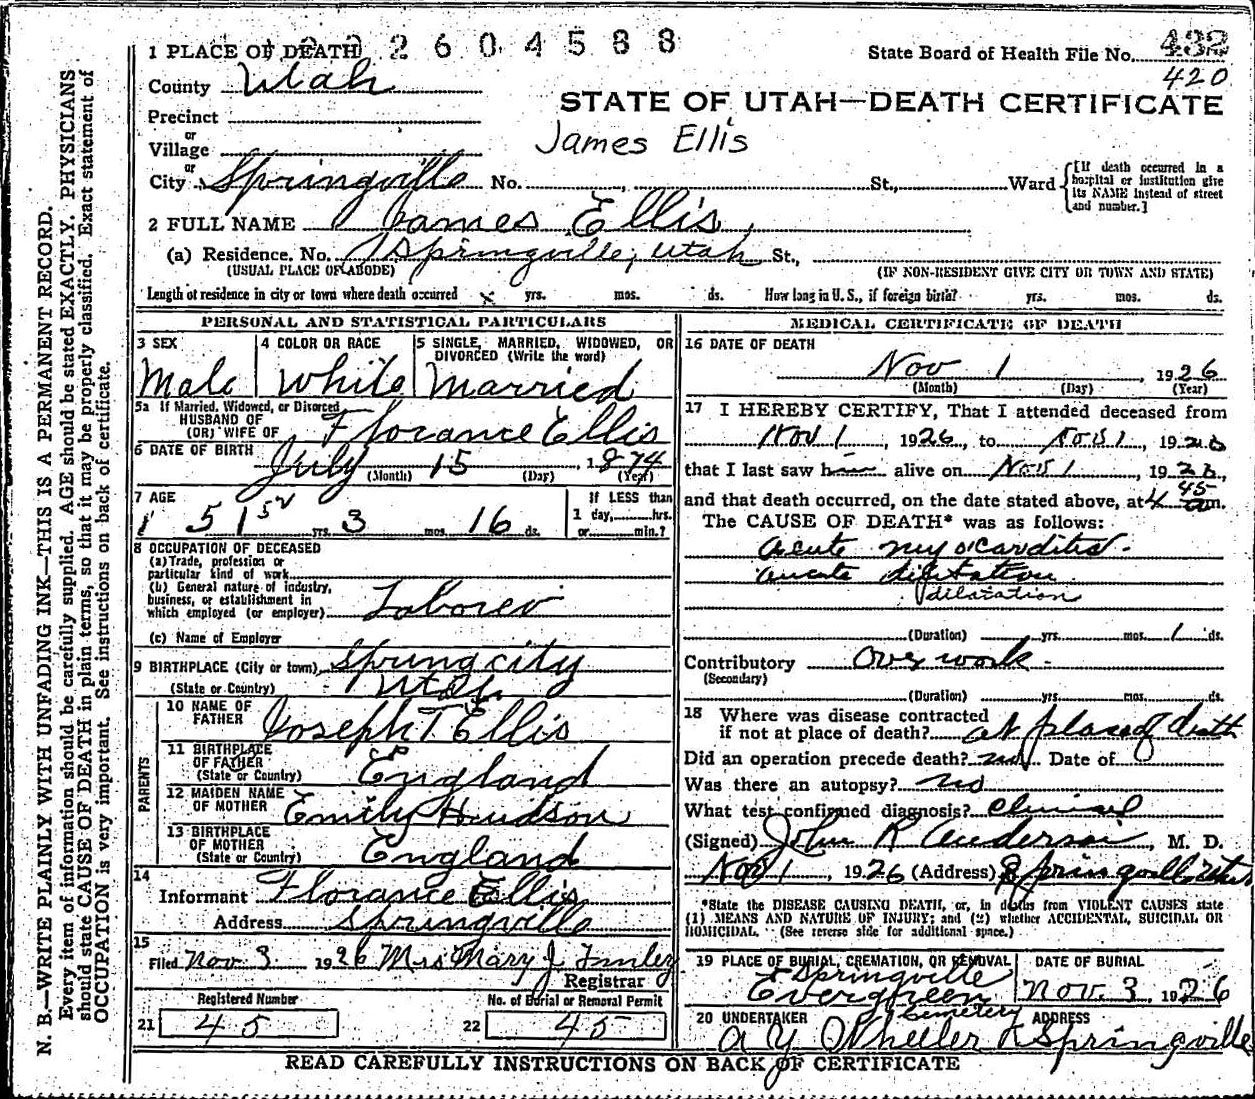 2604588
1 PLACE OF DEATH
State Board of Health File No. 432
420
County Utah
STATE OF UTAH—DEATH CERTIFICATE
Precinct
or
James Ellis
Village
or
City Springville No. , St., Ward
[If death occurred in a hospital or institution give its NAME instead of street and number.]
2 FULL NAME James Ellis
(a) Residence. No. Springville, Utah St.,
(USUAL PLACE OF ABODE) (IF NON-RESIDENT GIVE CITY OR TOWN AND STATE)
Length of residence in city or town where death occurred x yrs. mos. ds. How long in U. S., if foreign birth? yrs. mos. ds.
PERSONAL AND STATISTICAL PARTICULARS
3 SEX 4 COLOR OR RACE 5 SINGLE, MARRIED, WIDOWED, OR DIVORCED (Write the word)
Male White Married
5a If Married, Widowed, or Divorced
HUSBAND OF
(OR) WIFE OF Florance Ellis
6 DATE OF BIRTH
July 15, 1874
(Month) (Day) (Year)
7 AGE If LESS than
51 52 yrs. 3 mos. 16 ds. 1 day, hrs.
or min.?
8 OCCUPATION OF DECEASED
(a) Trade, profession or
particular kind of work
(b) General nature of industry,
business, or establishment in
which employed (or employer) Laborer
(c) Name of Employer
9 BIRTHPLACE (City or town) Spring city
(State or Country) Utah
PARENTS
10 NAME OF
FATHER Joseph T. Ellis
11 BIRTHPLACE
OF FATHER
(State or Country) England
12 MAIDEN NAME
OF MOTHER Emily Hudson
13 BIRTHPLACE
OF MOTHER
(State or Country) England
14
Informant Florance Ellis
Address Springville
15
Filed Nov 3 1926 Mrs Mary J
Registrar
Registered Number No. of Burial or Removal Permit
21 45 22 45
MEDICAL CERTIFICATE OF DEATH
16 DATE OF DEATH
Nov 1, 1926
(Month) (Day) (Year)
17 I HEREBY CERTIFY, That I attended deceased from
Nov 1, 1926, to Nov 1 1926
that I last saw him alive on Nov 1, 1926,
and that death occurred, on the date stated above, at 4 45 am.
The CAUSE OF DEATH* was as follows:
acute myocarditis.
acute
dilatation
(Duration) yrs. mos. 1 ds.
Contributory Over work.
(Secondary)
(Duration) yrs. mos. ds.
18 Where was disease contracted
if not at place of death? at place of death
Did an operation precede death? no Date of
Was there an autopsy? no
What test confirmed diagnosis? clinical
(Signed) John R Anderson, M. D.
Nov 1, 1926 (Address) Springville Utah
*State the DISEASE CAUSING DEATH, or, in deaths from VIOLENT CAUSES state
(1) MEANS AND NATURE OF INJURY; and (2) whether ACCIDENTAL, SUICIDAL OR
HOMICIDAL. (See reverse side for additional space.)
19 PLACE OF BURIAL, CREMATION, OR REMOVAL DATE OF BURIAL
Springville
Evergreen Nov. 3, 1926
Cemetery
20 UNDERTAKER ADDRESS
A Y Wheeler Springville
READ CAREFULLY INSTRUCTIONS ON BACK OF CERTIFICATE
N. B.—WRITE PLAINLY WITH UNFADING INK—THIS IS A PERMANENT RECORD.
Every item of information should be carefully supplied. AGE should be stated EXACTLY. PHYSICIANS
should state CAUSE OF DEATH in plain terms, so that it may be properly classified. Exact statement of
OCCUPATION is very important. See instructions on back of certificate.